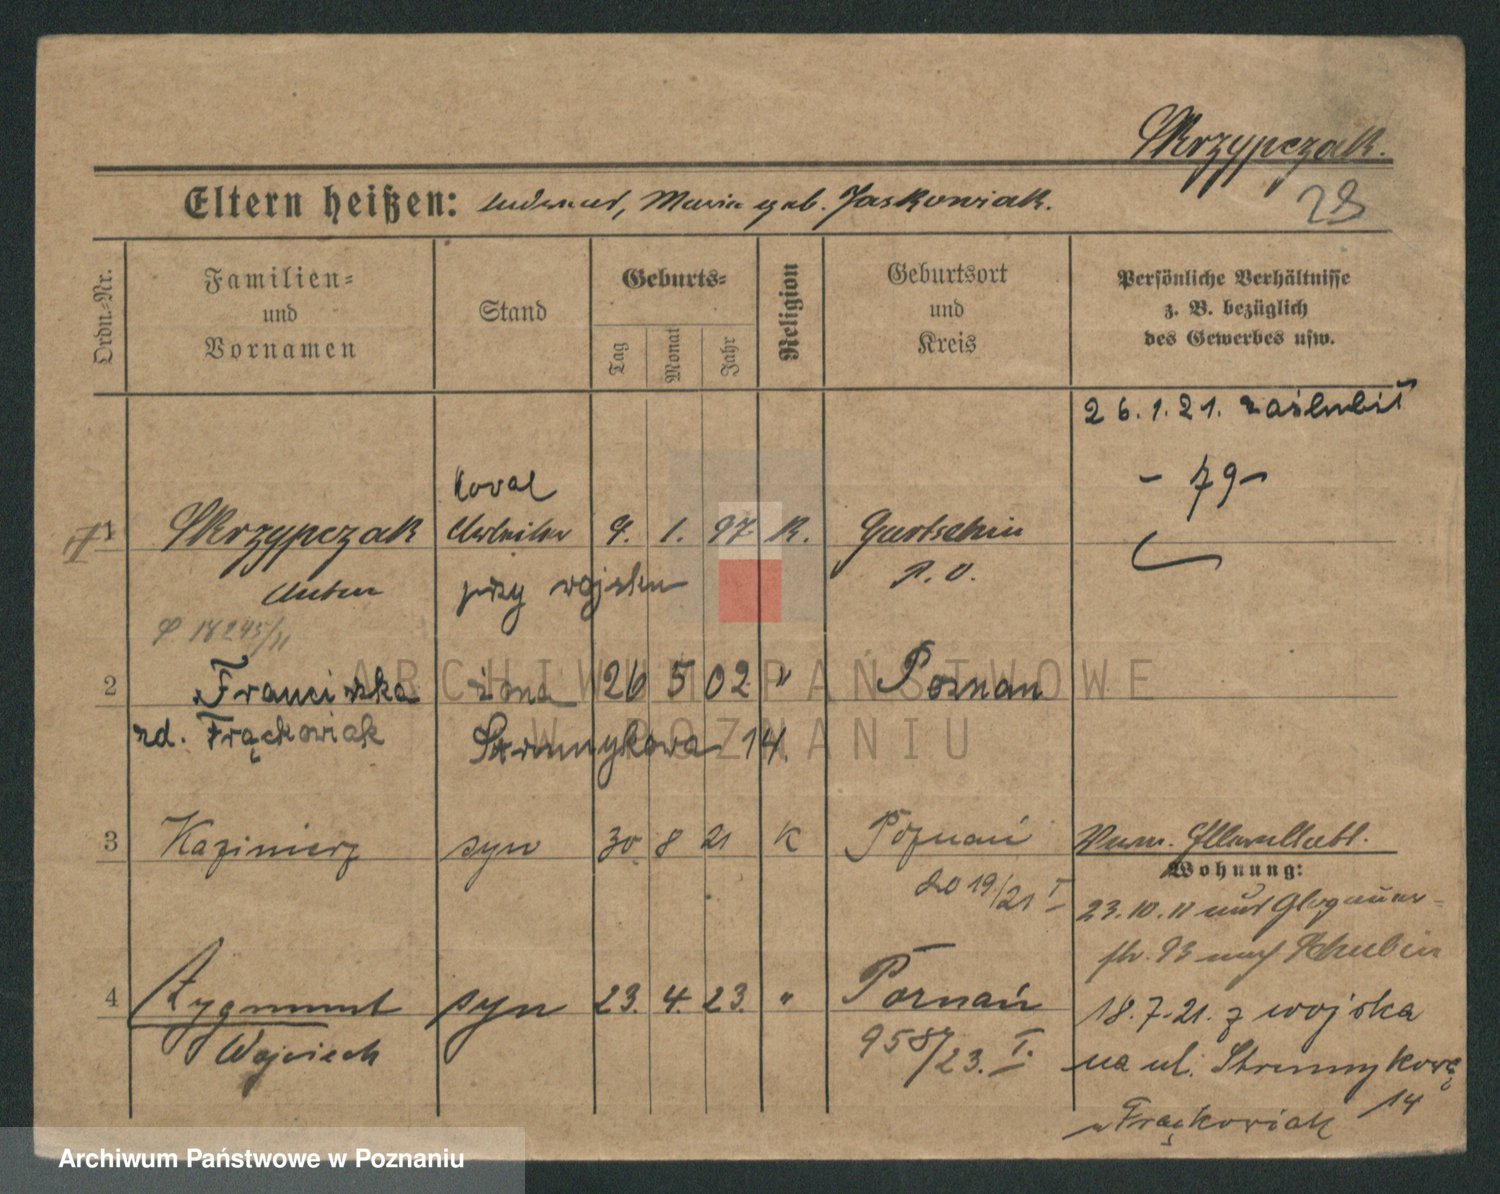 Skrzypczak.
Eltern heißen: Maria geb. Jaskowiak.
28
Ordn.-Nr.
Familien- und Vornamen
Stand
Geburts-
Tag
Monat
Jahr
Religion
Geburtsort und Kreis
Persönliche Verhältnisse
z. B. bezüglich
des Gewerbes usw.
26.1.21. zaślubił
- 79 -
Kowal
1 Skrzypczak Arbeiter 9. 1. 97 K. Gurtschin
Anton przy wojsku P. O.
18245/11
2 Franciszka żona 26 5 02 " Poznan
zd. Frąckowiak Strumykowa 14.
3 Kazimierz syn 30 8 21 K Poznań
19/21 I
Wohnung:
23.10.11 Glogauer-
str. 93 nach Schubin
4 Zygmunt syn 23. 4. 23. " Poznań
Wojciech 958/23. I.
18.7.21. z wojska
na ul. Strumykową
14
u Frąckowiak
ARCHIWUM PAŃSTWOWE
W POZNANIU
Archiwum Państwowe w Poznaniu